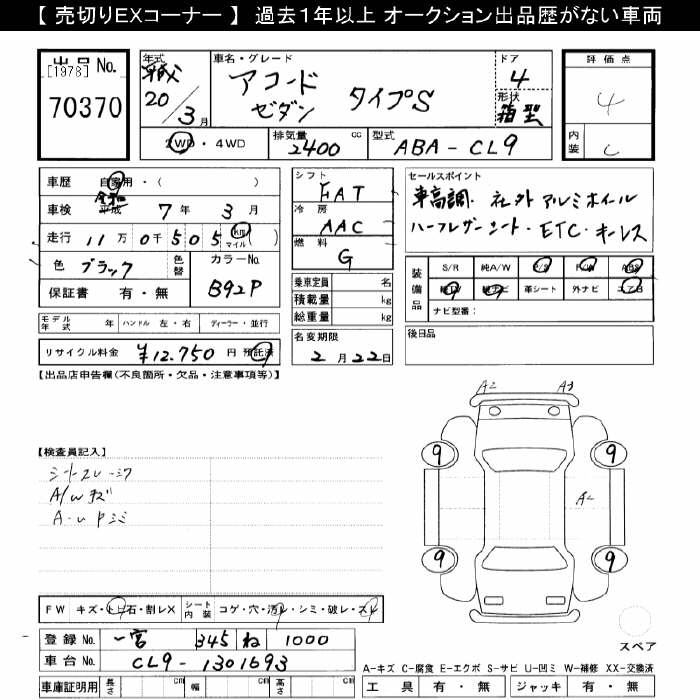 【 売切りEXコーナー 】 過去1年以上 オークション出品歴がない車両
出品No.
[1978]
70370
年式
平成
20 / 3月
車名・グレード
アコード
セダン タイプS
ドア
4
形状
箱型
評価点
4
内装
C
2WD・4WD
排気量
2400 cc
型式
ABA-CL9
車歴 自家用・( )
車検 平成 7年 3月
走行 11万0千505 km マイル ( )
色 ブラック 色替
カラーNo.
B92P
保証書 有・無
モデル年式 年 ハンドル 左・右 ディーラー・並行
リサイクル料金 ¥12.750 円 預託済
シフト
FAT
冷房
AAC
燃料
G
乗車定員 名
積載量 kg
総重量 kg
名変期限
2月22日
セールスポイント
車高調. 社外アルミホイール
ハーフレザーシート・ETC・キーレス
装備品
S/R 純A/W P/S P/W ABS
純TV 純ナビ 革シート 外ナビ エアB
ナビ型番:
後日品
【出品店申告欄(不良箇所・欠品・注意事項等)】
【検査員記入】
シートスレ
A/Wキズ
A2
A3
A2
9
9
9
9
スペア
FW キズ・トビ石・割レX シート内装 コゲ・穴・汚レ・シミ・破レ・スレ
登録No. 一宮 345 ね 1000
車台No. CL9-1301693
車庫証明用 長さ cm 幅 cm 高さ cm
A-キズ C-腐食 E-エクボ S-サビ U-凹ミ W-補修 XX-交換済
工具 有・無 ジャッキ 有・無